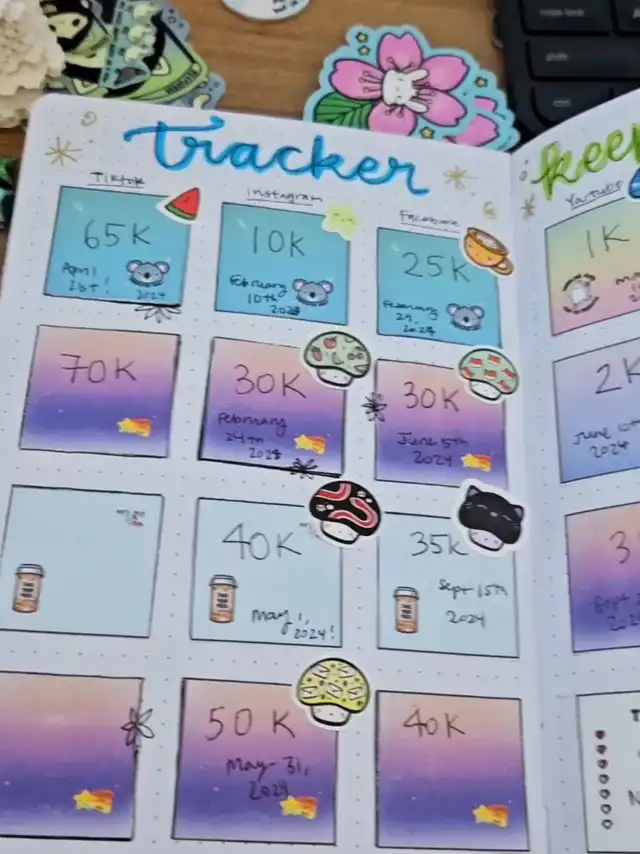 tracker
keep
Tiktok
Instagram
Facebook
Youtube
65K
April
2024
10K
February
10th
2024
25K
February
29,
2024
1K
70K
30K
February
24th
2024
30K
June 5th
2024
2K
June 10th
2024
40K
May 1,
2024!
35K
Sept 15th
2024
3
Sept
50K
May 31,
2024
40K
caps lock
shift
ctrl